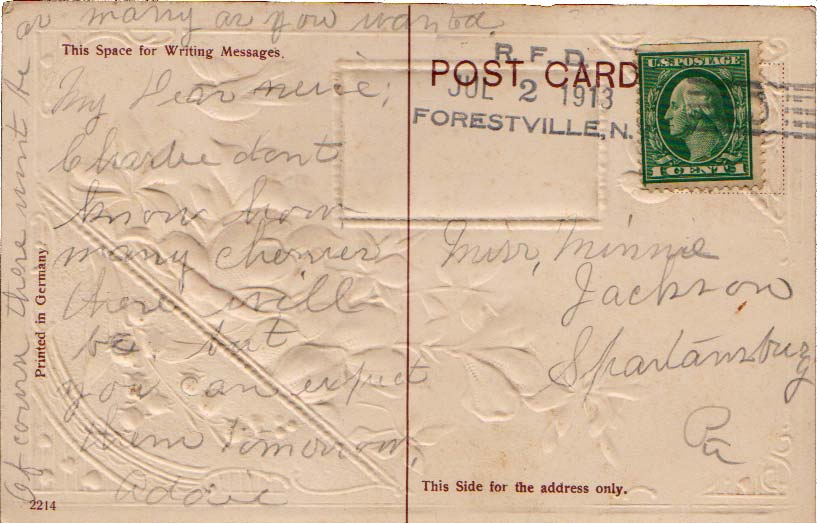 This Space for Writing Messages.
My Dear niece;
Charlie dont
know how
many cherries
there will
be, but
you can expect
them tomorrow,
Addie
Of course there wont be
as many as you wanted
Printed in Germany.
2214
POST CARD
R.F.D.
JUL 2 1913
FORESTVILLE, N.
U.S. POSTAGE
1 CENT 1
Miss, Minnie
Jackson
Spartansburg
Pa
This Side for the address only.